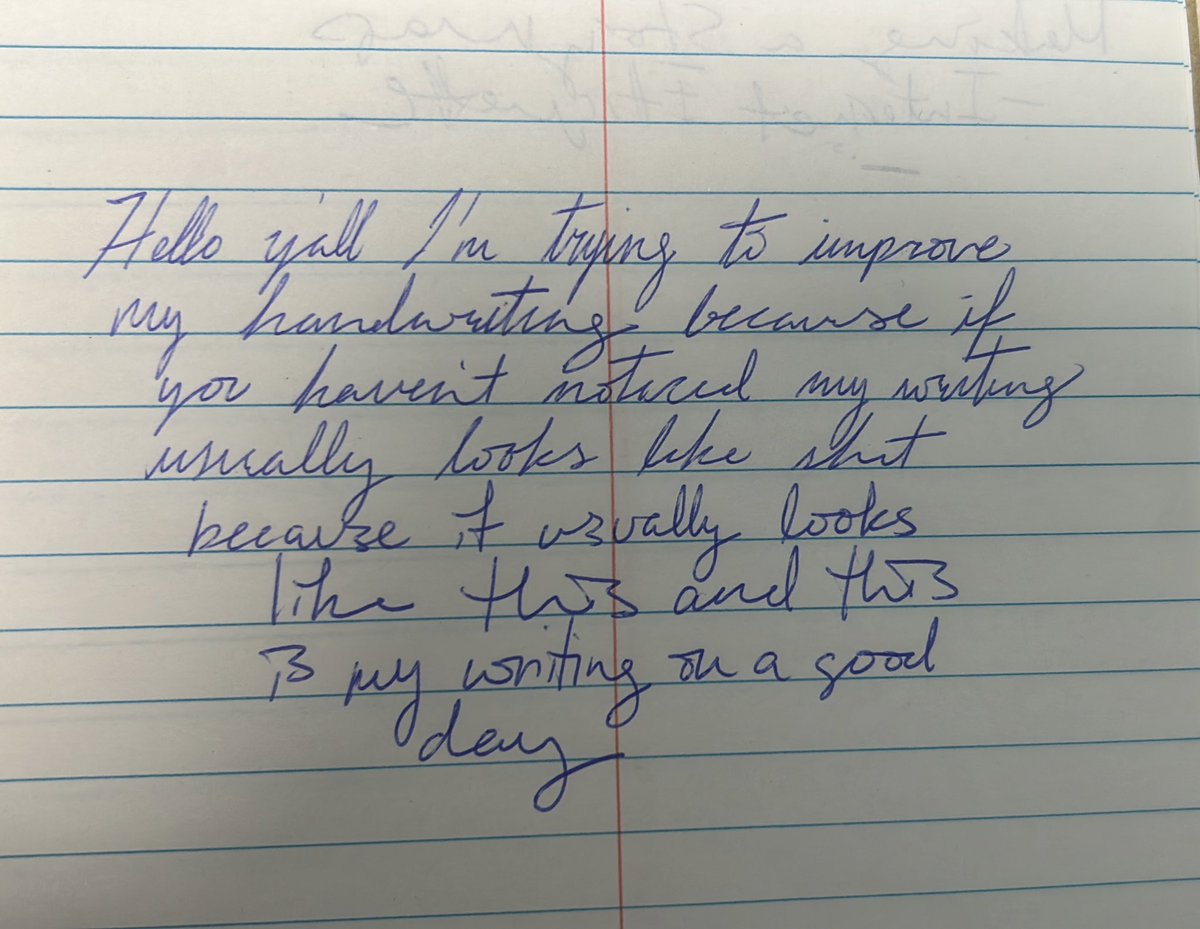 Hello y'all I'm trying to improve
my handwriting because if
you haven't noticed my writing
usually looks like shit
because it usually looks
like this and this
is my writing on a good
day